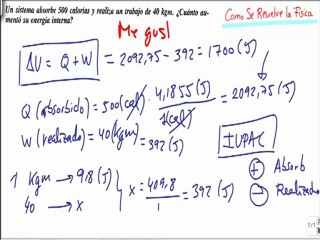 Un sistema absorbe 500 calorías y realiza un trabajo de 40 kgm. ¿Cuánto au-
mentó su energía interna?
Me gus
Como Se Resuelve la Física
ΔU = Q + W = 2092,75 - 392 = 1700 (J)
Q (absorbido) = 500 (cal) · 4,1855 (J) / 1 (cal) = 2092,75 (J)
W (realizado) = 40 (kgm) = 392 (J)
IUPAC
1 kgm → 9,8 (J)
40 → x
x = 40·9,8 / 1 = 392 (J)
+ Absorb
- Realizado